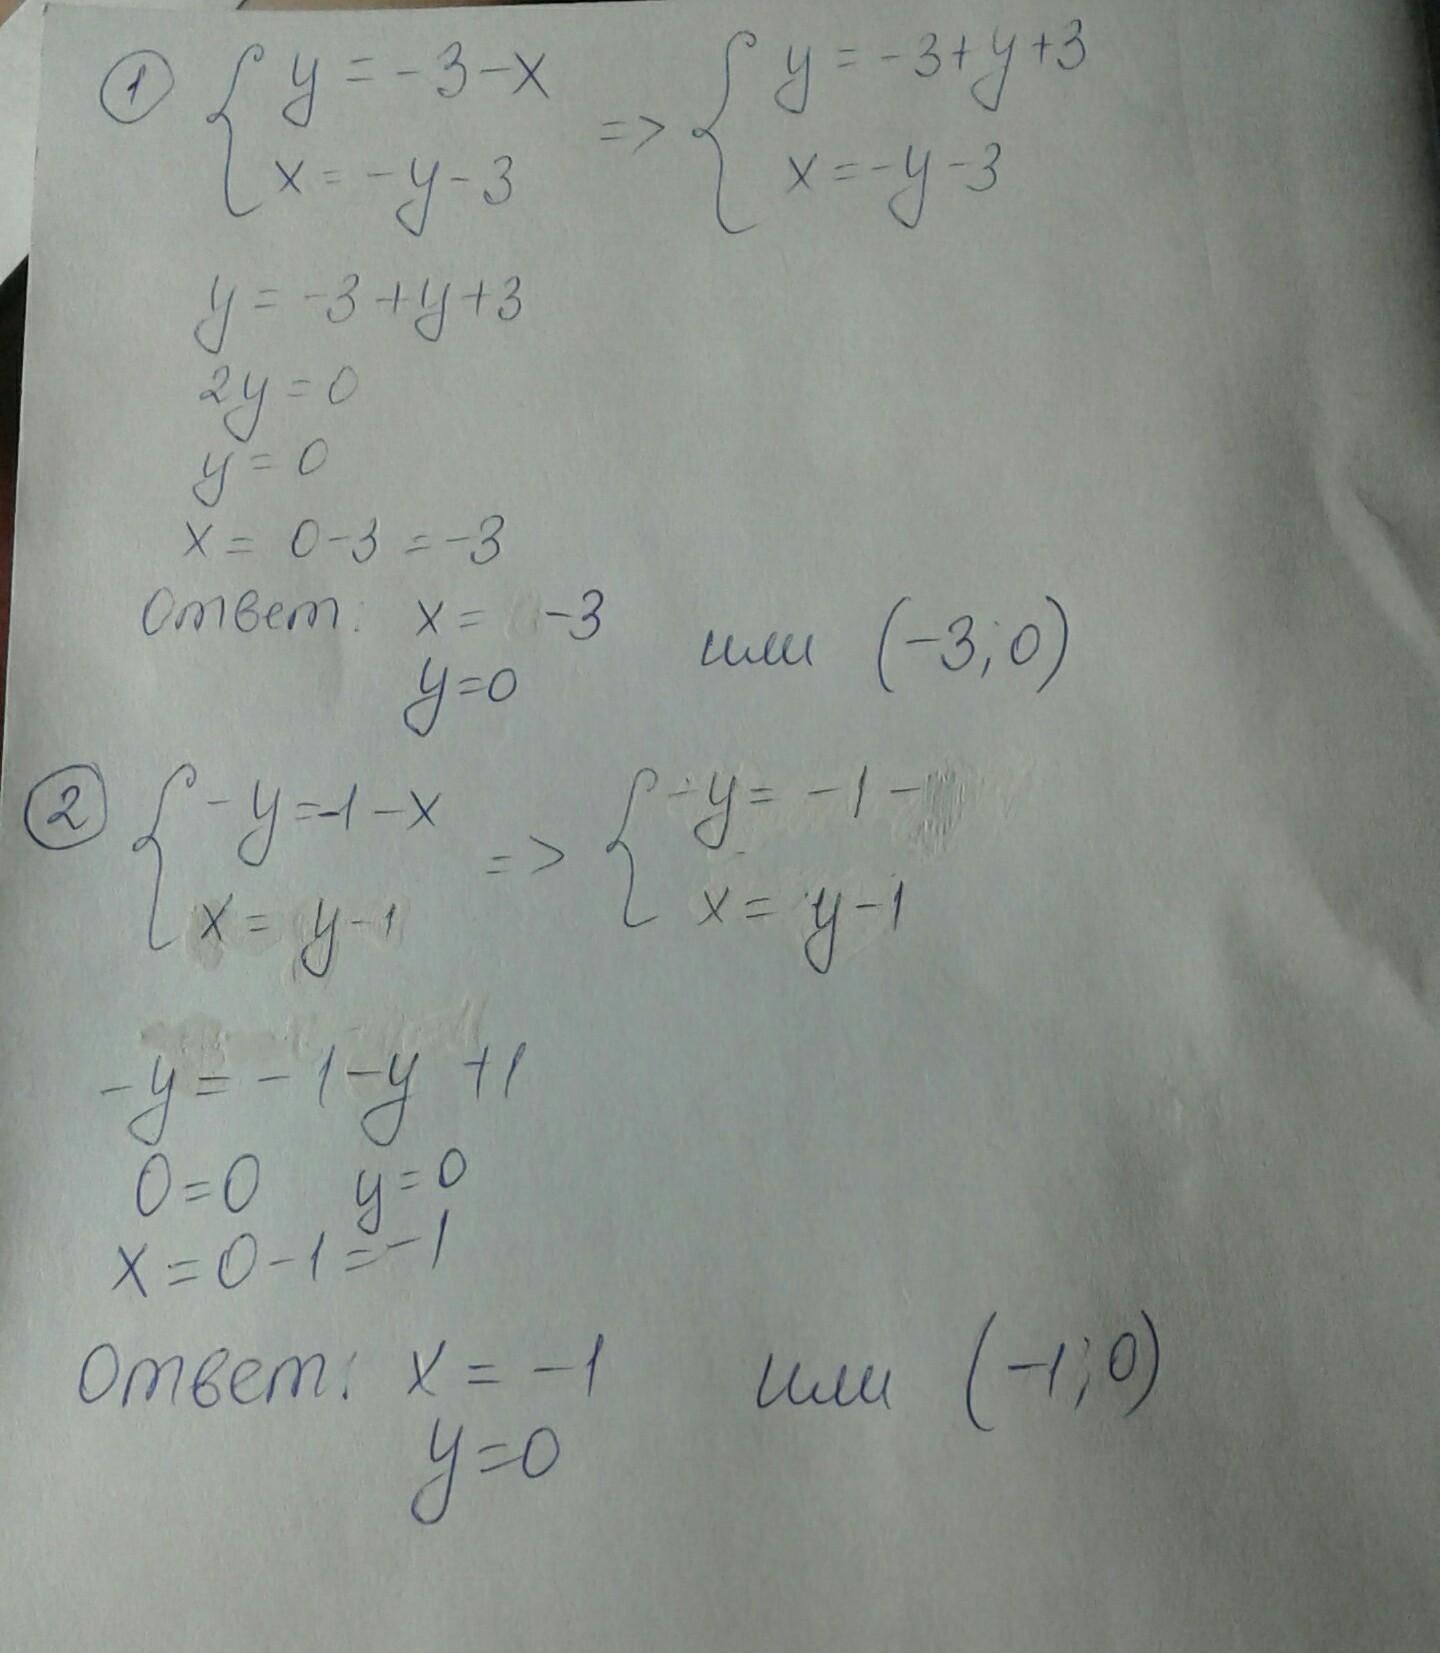 1 { y = -3 - x => { y = -3 + y + 3
x = -y - 3 x = -y - 3
y = -3 + y + 3
2y = 0
y = 0
x = 0 - 3 = -3
Ответ: x = -3 или (-3; 0)
y = 0
2 { -y = -1 - x => { -y = -1 -
x = y - 1 x = y - 1
-y = -1 - y + 1
0 = 0 y = 0
x = 0 - 1 = -1
Ответ: x = -1 или (-1; 0)
y = 0